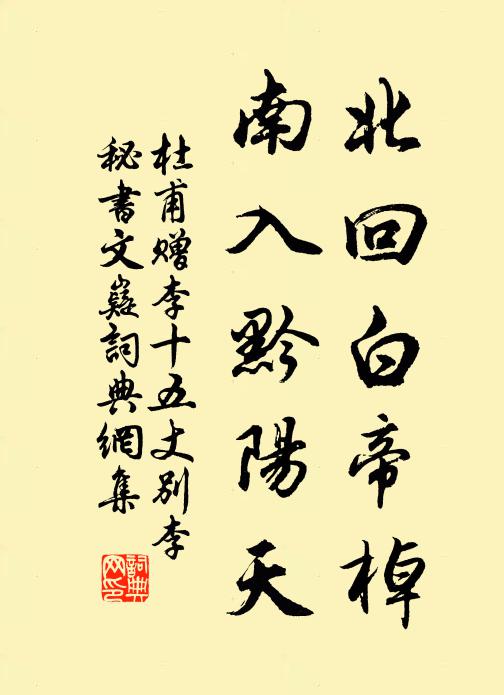 北回白帝棹
南入黔陽天
杜甫贈李十五丈別李
秘書文嶷詞典網集
詞典
网印